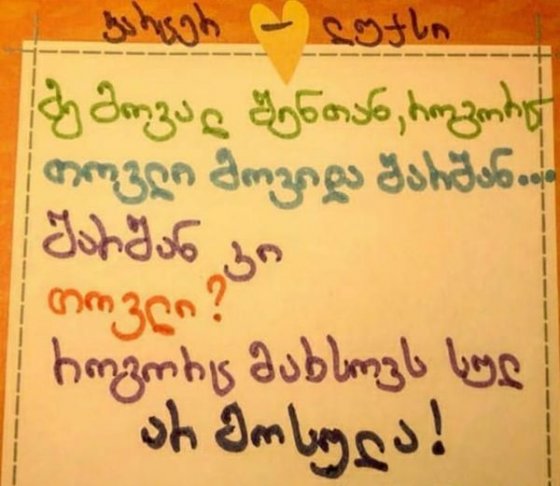 ვარცერ - ლუქსი
მე მოვალ შენთან, როგორც
თოვლი მოვიდა შარშან...
შარშან კი
თოვლი?
როგორც მახსოვს სულ
არ მოსულა!